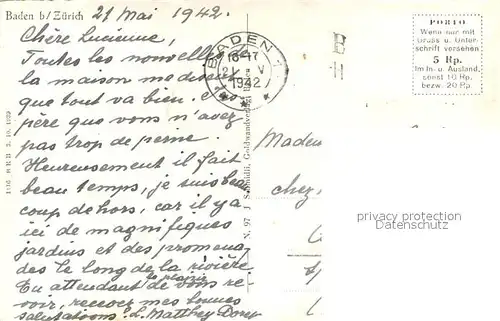 Baden b/Zürich
21 Mai 1942.
Chère Lucienne,
Toutes les nouvelles de
la maison me disent
que tout va bien. J'es
père que vous n'avez
pas trop de peine.
Heureusement il fait
beau temps, je suis beau
coup dehors, car il y a
ici de magnifiques
jardins et des promena
des le long de la rivière
En attendant le plaisir
de vous re
voir, recevez mes bonnes
salutations. L. Matthey Doret
BADEN 1
16-17
21. V
1942
PORTO
Wenn nur mit
Gruss u. Unter-
schrift versehen
5 Rp.
im In- u. Ausland,
sonst 10 Rp.
bezw. 20 Rp.
N. 97 J. Schmidli, Goldwandverlag
Madem
chez
privacy protection
Datenschutz